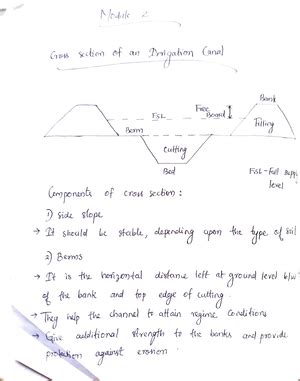 Module 2
Cross section of an Irrigation Canal
Bank
Free
Board
FSL
Filling
Berm
Cutting
Bed
FSL - Full supply
level
Components of cross section :
1) side slope
→ It should be stable, depending upon the type of soil
2) Berms
→ It is the horizontal distance left at ground level b/w
of the bank and top edge of cutting.
→ They help the channel to attain regime conditions
→ Give additional strength to the banks and provide
protection against erosion.